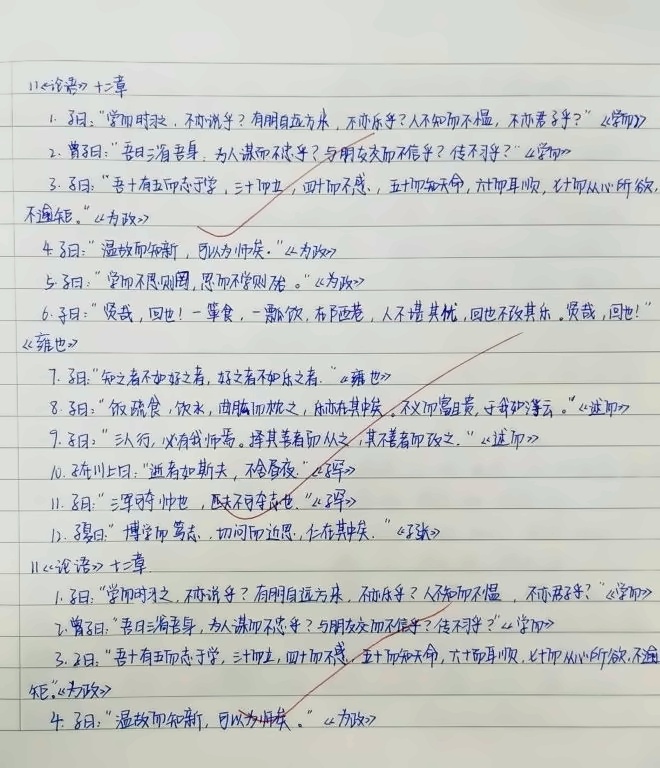 11《论语》十二章
1. 子曰:“学而时习之,不亦说乎?有朋自远方来,不亦乐乎?人不知而不愠,不亦君子乎?”《学而》
2. 曾子曰:“吾日三省吾身,为人谋而不忠乎?与朋友交而不信乎?传不习乎?”《学而》
3. 子曰:“吾十有五而志于学,三十而立,四十而不惑,五十而知天命,六十而耳顺,七十而从心所欲,
不逾矩。”《为政》
4. 子曰:“温故而知新,可以为师矣。”《为政》
5. 子曰:“学而不思则罔,思而不学则殆。”《为政》
6. 子曰:“贤哉,回也!一箪食,一瓢饮,在陋巷,人不堪其忧,回也不改其乐。贤哉,回也!”
《雍也》
7. 子曰:“知之者不如好之者,好之者不如乐之者。”《雍也》
8. 子曰:“饭疏食,饮水,曲肱而枕之,乐亦在其中矣。不义而富且贵,于我如浮云。”《述而》
9. 子曰:“三人行,必有我师焉。择其善者而从之,其不善者而改之。”《述而》
10. 子在川上曰:“逝者如斯夫,不舍昼夜。”《子罕》
11. 子曰:“三军可夺帅也,匹夫不可夺志也。”《子罕》
12. 子夏曰:“博学而笃志,切问而近思,仁在其中矣。”《子张》
11《论语》十二章
1. 子曰:“学而时习之,不亦说乎?有朋自远方来,不亦乐乎?人不知而不愠,不亦君子乎?”《学而》
2. 曾子曰:“吾日三省吾身,为人谋而不忠乎?与朋友交而不信乎?传不习乎?”《学而》
3. 子曰:“吾十有五而志于学,三十而立,四十而不惑,五十而知天命,六十而耳顺,七十而从心所欲,不逾
矩。”《为政》
4. 子曰:“温故而知新,可以为师矣。”《为政》